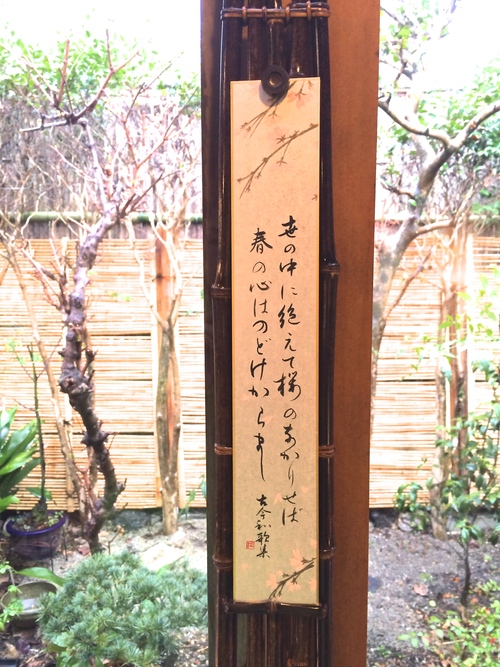 世の中に絶えて桜のなかりせば
春の心はのどけからまし
古今和歌集